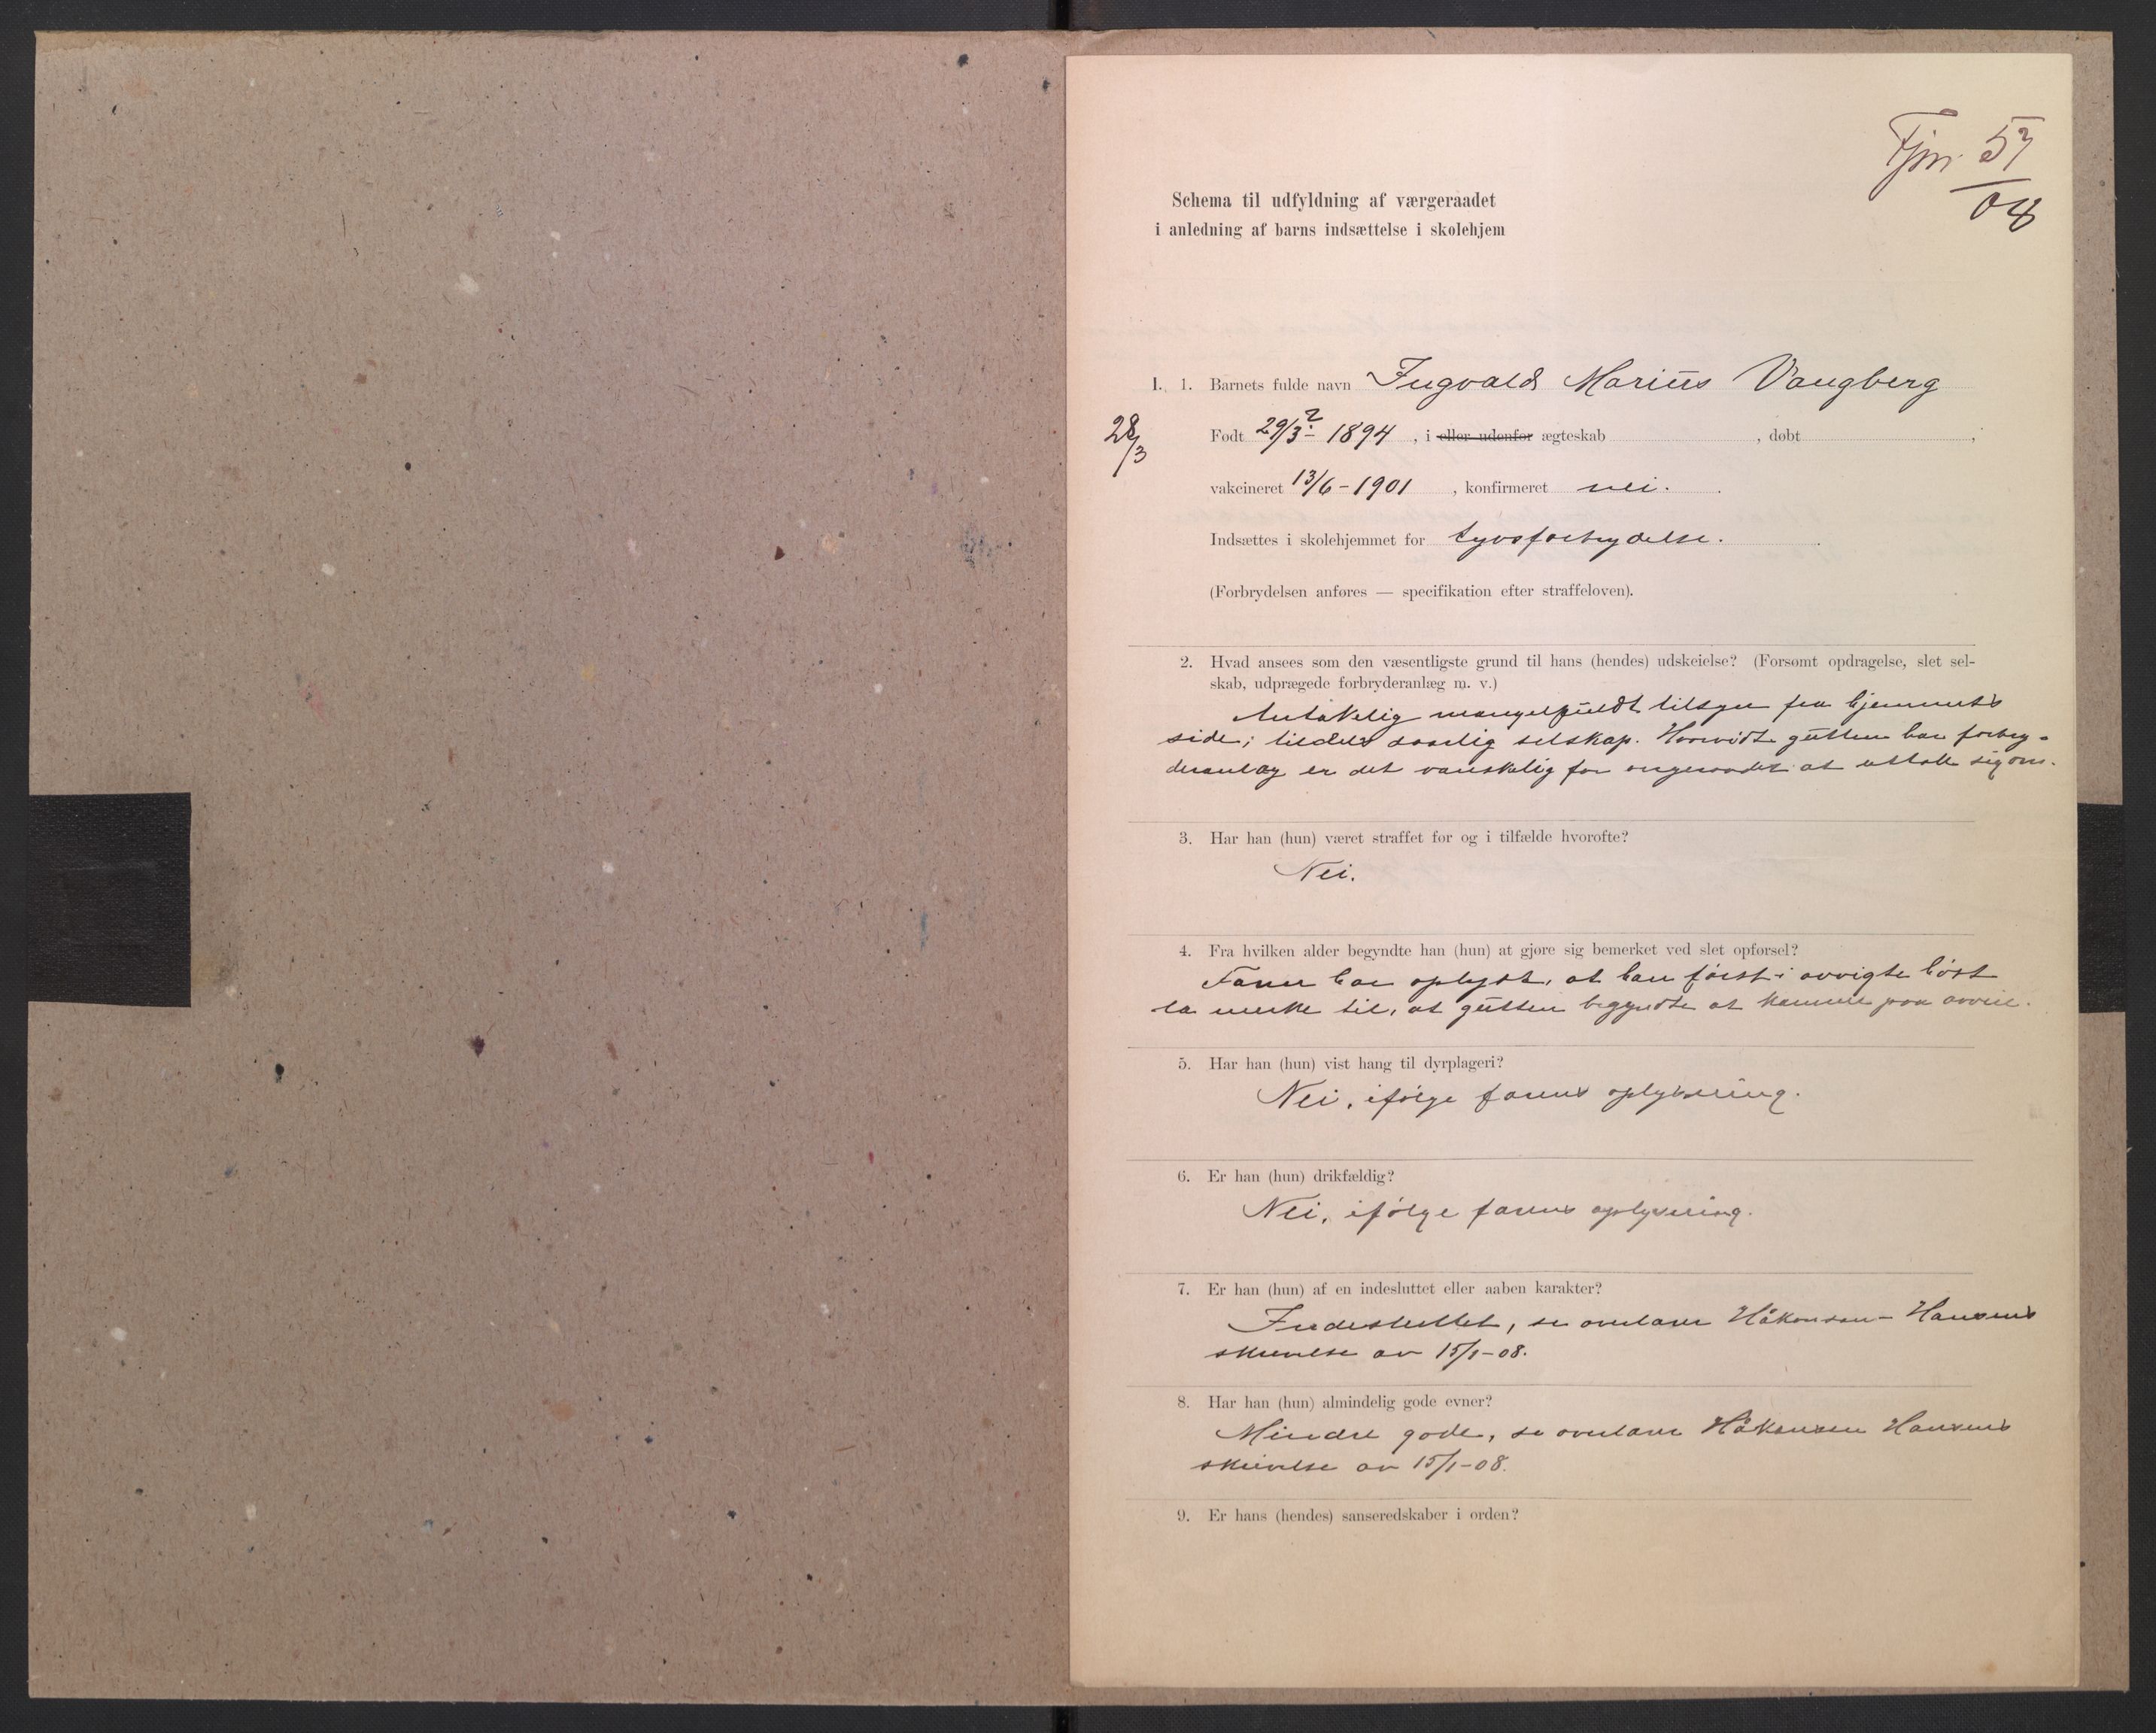 Fjnr. 57
/08
Schema til udfyldning af værgeraadet
i anledning af barns indsættelse i skolehjem
I. 1. Barnets fulde navn Ingvald Marius Vangberg
28/3
Født 29/3 ? - 1894, i eller udenfor ægteskab , døbt ,
vakcineret 13/6 - 1901 , konfirmeret nei. .
Indsættes i skolehjemmet for tyvsforbrydelse.
(Forbrydelsen anføres — specifikation efter straffeloven).
2. Hvad ansees som den væsentligste grund til hans (hendes) udskeielse? (Forsømt opdragelse, slet sel-
skab, udprægede forbryderanlæg m. v.)
Antakelig mangelfuldt tilsyn fra hjemmets
side; tildels daarlig selskap. Hvorvidt gutten har forbry-
deranlæg er det vanskelig for vergeraadet at uttale sig om.
3. Har han (hun) været straffet før og i tilfælde hvorofte?
Nei.
4. Fra hvilken alder begyndte han (hun) at gjøre sig bemerket ved slet opførsel?
Faren har oplyst, at han først i forrige høst
la merke til, at gutten begyndte at komme paa avveie.
5. Har han (hun) vist hang til dyrplageri?
Nei, ifølge farens oplysning.
6. Er han (hun) drikfældig?
Nei, ifølge farens oplysning.
7. Er han (hun) af en indesluttet eller aaben karakter?
Indesluttet, se overlærer Håkonson-Hansens
skrivelse av 15/1-08.
8. Har han (hun) almindelig gode evner?
Mindre gode, se overlærer Håkonson Hansens
skrivelse av 15/1-08.
9. Er hans (hendes) sanseredskaber i orden?